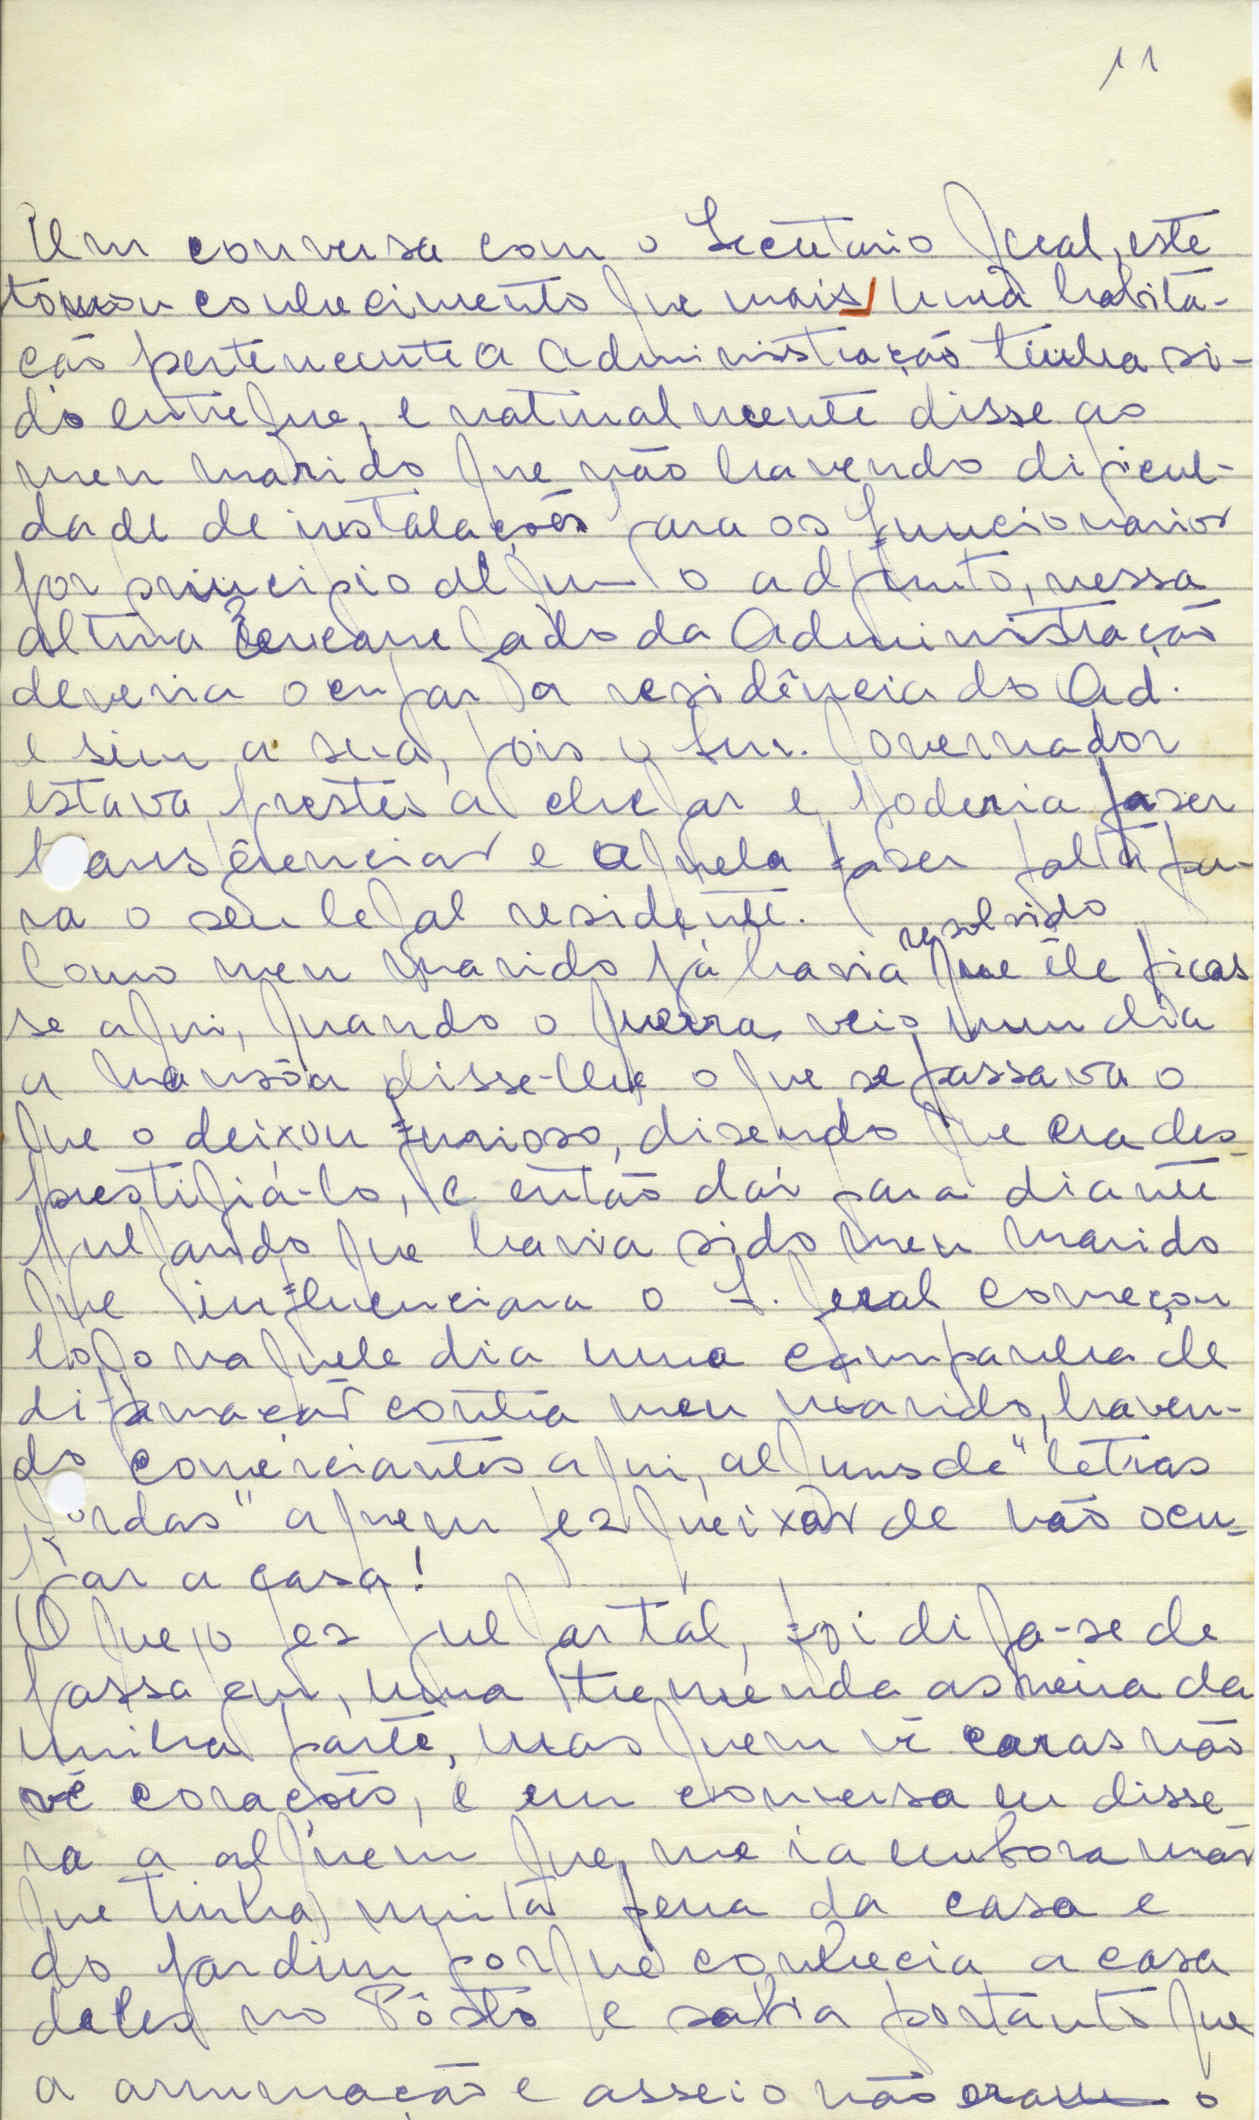 11
Em conversa com o Secretario Geral, este
tomou conhecimento que mais uma habita-
ção pertencente a Administração tinha si-
do entregue, e naturalmente disse ao
meu marido que não havendo dificul-
dade de instalações para os funcionarios
por principio algum o adjunto, nessa
altura encarregado da Administração
deveria ocupar a residência do Ad.
e sim a sua, pois o Snr. Governador
estava prestes a chegar e poderia fazer
transferencias e aquela fazer falta pa-
ra o seu legal residente.
Como meu marido já havia resolvido que êle ficas
se aqui, quando o Guerra veio num dia
a Mansôa disse-lhe o que se passava o
que o deixou furioso, dizendo que era des-
prestigiá-lo, e então daí para diante
julgando que havia sido meu marido
que influenciara o S. Geral começou
logo naquele dia uma campanha de
difamação contra meu marido, haven-
do comerciantes aqui, alguns de "letras
gordas" a quem fez queixas de não ocu-
par a casa!
O que o fez julgar tal, foi diga-se de
passagem, uma tremenda asneira da
minha parte, mas quem vê caras não
vê corações, e em conversa eu disse
ra a alguem que me ia embora mas
que tinha muita pena da casa e
do jardim porque conhecia a casa
deles no Pôsto e sabia portanto que
a arrumação e asseio não eram o